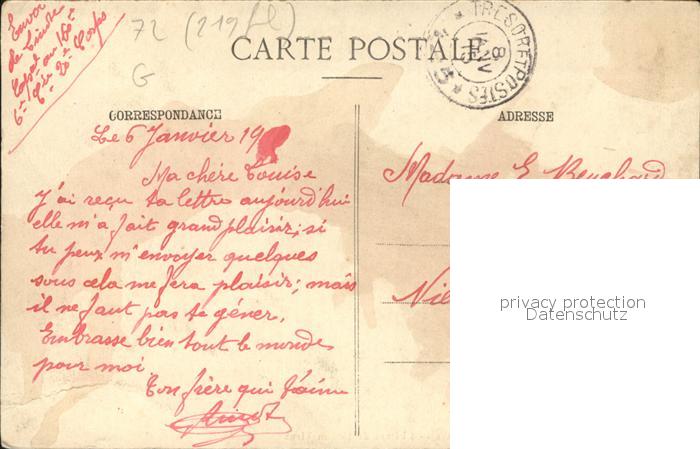 Envoi
de
Capal au 160e
6e Cie 20e Corps
72 (219 fl)
G
CARTE POSTALE
TRESOR ET POSTES
CORRESPONDANCE
ADRESSE
Le 6 Janvier 19
Ma chère Louise
J'ai reçu ta lettre aujourd'hui
elle m'a fait grand plaisir, si
tu peux m'envoyer quelques
sous cela me fera plaisir; mais
il ne faut pas te géner.
Embrasse bien tout le monde
pour moi
Ton frère qui t'aime
Madame E
privacy protection
Datenschutz